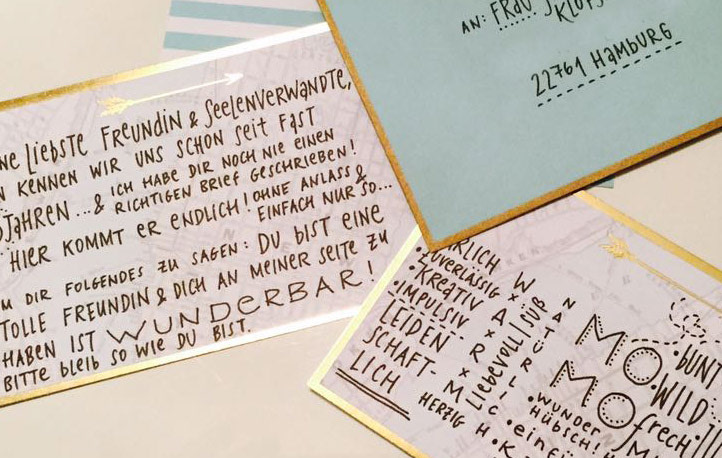 AN: FRAU
22761 HAMBURG
LIEBSTE FREUNDIN & SEELENVERWANDTE,
KENNEN WIR UNS SCHON SEIT FAST
JAHREN...& ICH HABE DIR NOCH NIE EINEN
RICHTIGEN BRIEF GESCHRIEBEN!
HIER KOMMT ER ENDLICH! OHNE ANLASS &
EINFACH NUR SO...
M DIR FOLGENDES ZU SAGEN: DU BIST EINE
TOLLE FREUNDIN & DICH AN MEINER SEITE ZU
HABEN IST WUNDERBAR!
BITTE BLEIB SO WIE DU BIST.
RLICH
ZUVERLÄSSIG
KREATIV
IMPULSIV
LEIDEN
SCHAFT-
LICH
WARM
HERZIG
Liebevoll
SÜß
NATÜRLIC
MOMO
BUNT
WILD
frech
WUNDER
HÜBSCH!